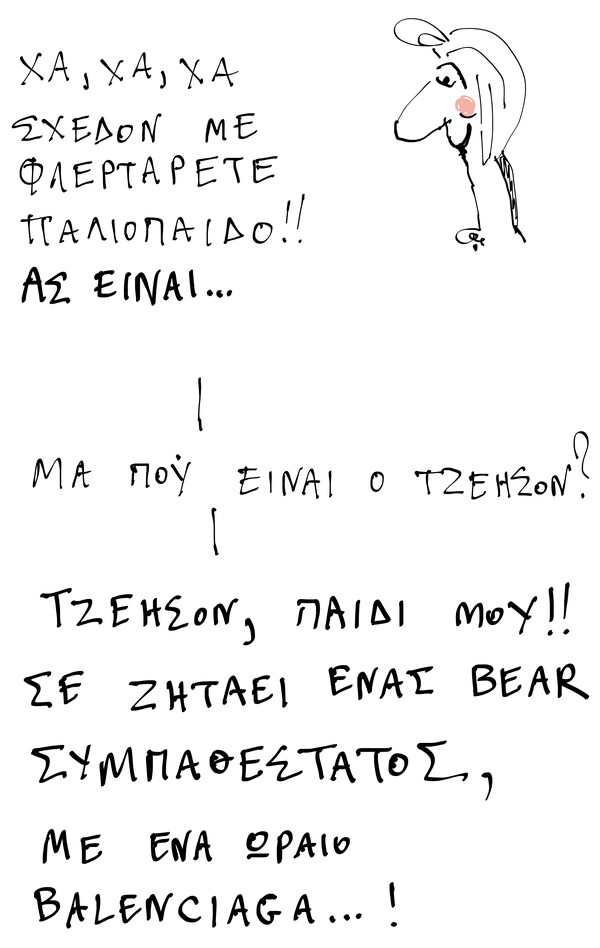 ΧΑ, ΧΑ, ΧΑ
ΣΧΕΔΟΝ ΜΕ
ΦΛΕΡΤΑΡΕΤΕ
ΠΑΛΙΟΠΑΙΔΟ!!
ΑΣ ΕΙΝΑΙ...
ΜΑ ΠΟΥ ΕΙΝΑΙ Ο ΤΖΕΗΣΟΝ?
ΤΖΕΗΣΟΝ, ΠΑΙΔΙ ΜΟΥ!!
ΣΕ ΖΗΤΑΕΙ ΕΝΑΣ BEAR
ΣΥΜΠΑΘΕΣΤΑΤΟΣ,
ΜΕ ΕΝΑ ΩΡΑΙΟ
BALENCIAGA...!